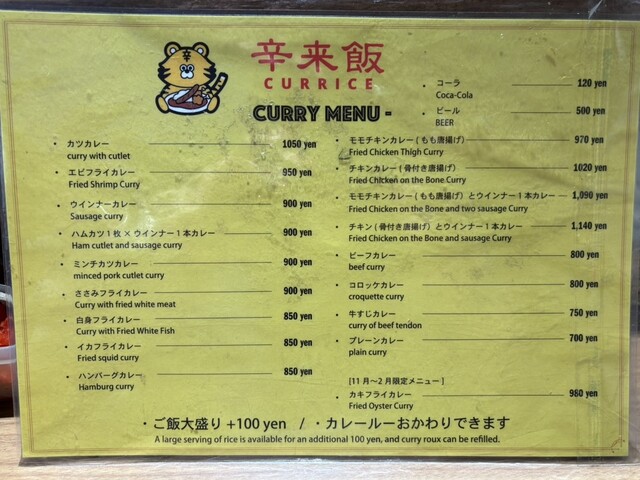 辛来飯
CURRICE
CURRY MENU -
・ コーラ 120 yen
Coca-Cola
・ ビール 500 yen
BEER
・ カツカレー 1050 yen
curry with cutlet
・ エビフライカレー 950 yen
Fried Shrimp Curry
・ ウインナーカレー 900 yen
Sausage curry
・ ハムカツ1枚×ウインナー1本カレー 900 yen
Ham cutlet and sausage curry
・ ミンチカツカレー 900 yen
minced pork cutlet curry
・ ささみフライカレー 900 yen
Curry with fried white meat
・ 白身フライカレー 850 yen
Curry with Fried White Fish
・ イカフライカレー 850 yen
Fried squid curry
・ ハンバーグカレー 850 yen
Hamburg curry
・ モモチキンカレー(もも唐揚げ) 970 yen
Fried Chicken Thigh Curry
・ チキンカレー(骨付き唐揚げ) 1020 yen
Fried Chicken on the Bone Curry
・ モモチキンカレー(もも唐揚げ)とウインナー1本カレー 1,090 yen
Fried Chicken on the Bone and two sausage Curry
・ チキン(骨付き唐揚げ)とウインナー1本カレー 1,140 yen
Fried Chicken on the Bone and sausage Curry
・ ビーフカレー 800 yen
beef curry
・ コロッケカレー 800 yen
croquette curry
・ 牛すじカレー 750 yen
curry of beef tendon
・ プレーンカレー 700 yen
plain curry
[11月〜2月限定メニュー]
・ カキフライカレー 980 yen
Fried Oyster Curry
・ご飯大盛り +100 yen / ・カレールーおかわりできます
A large serving of rice is available for an additional 100 yen, and curry roux can be refilled.